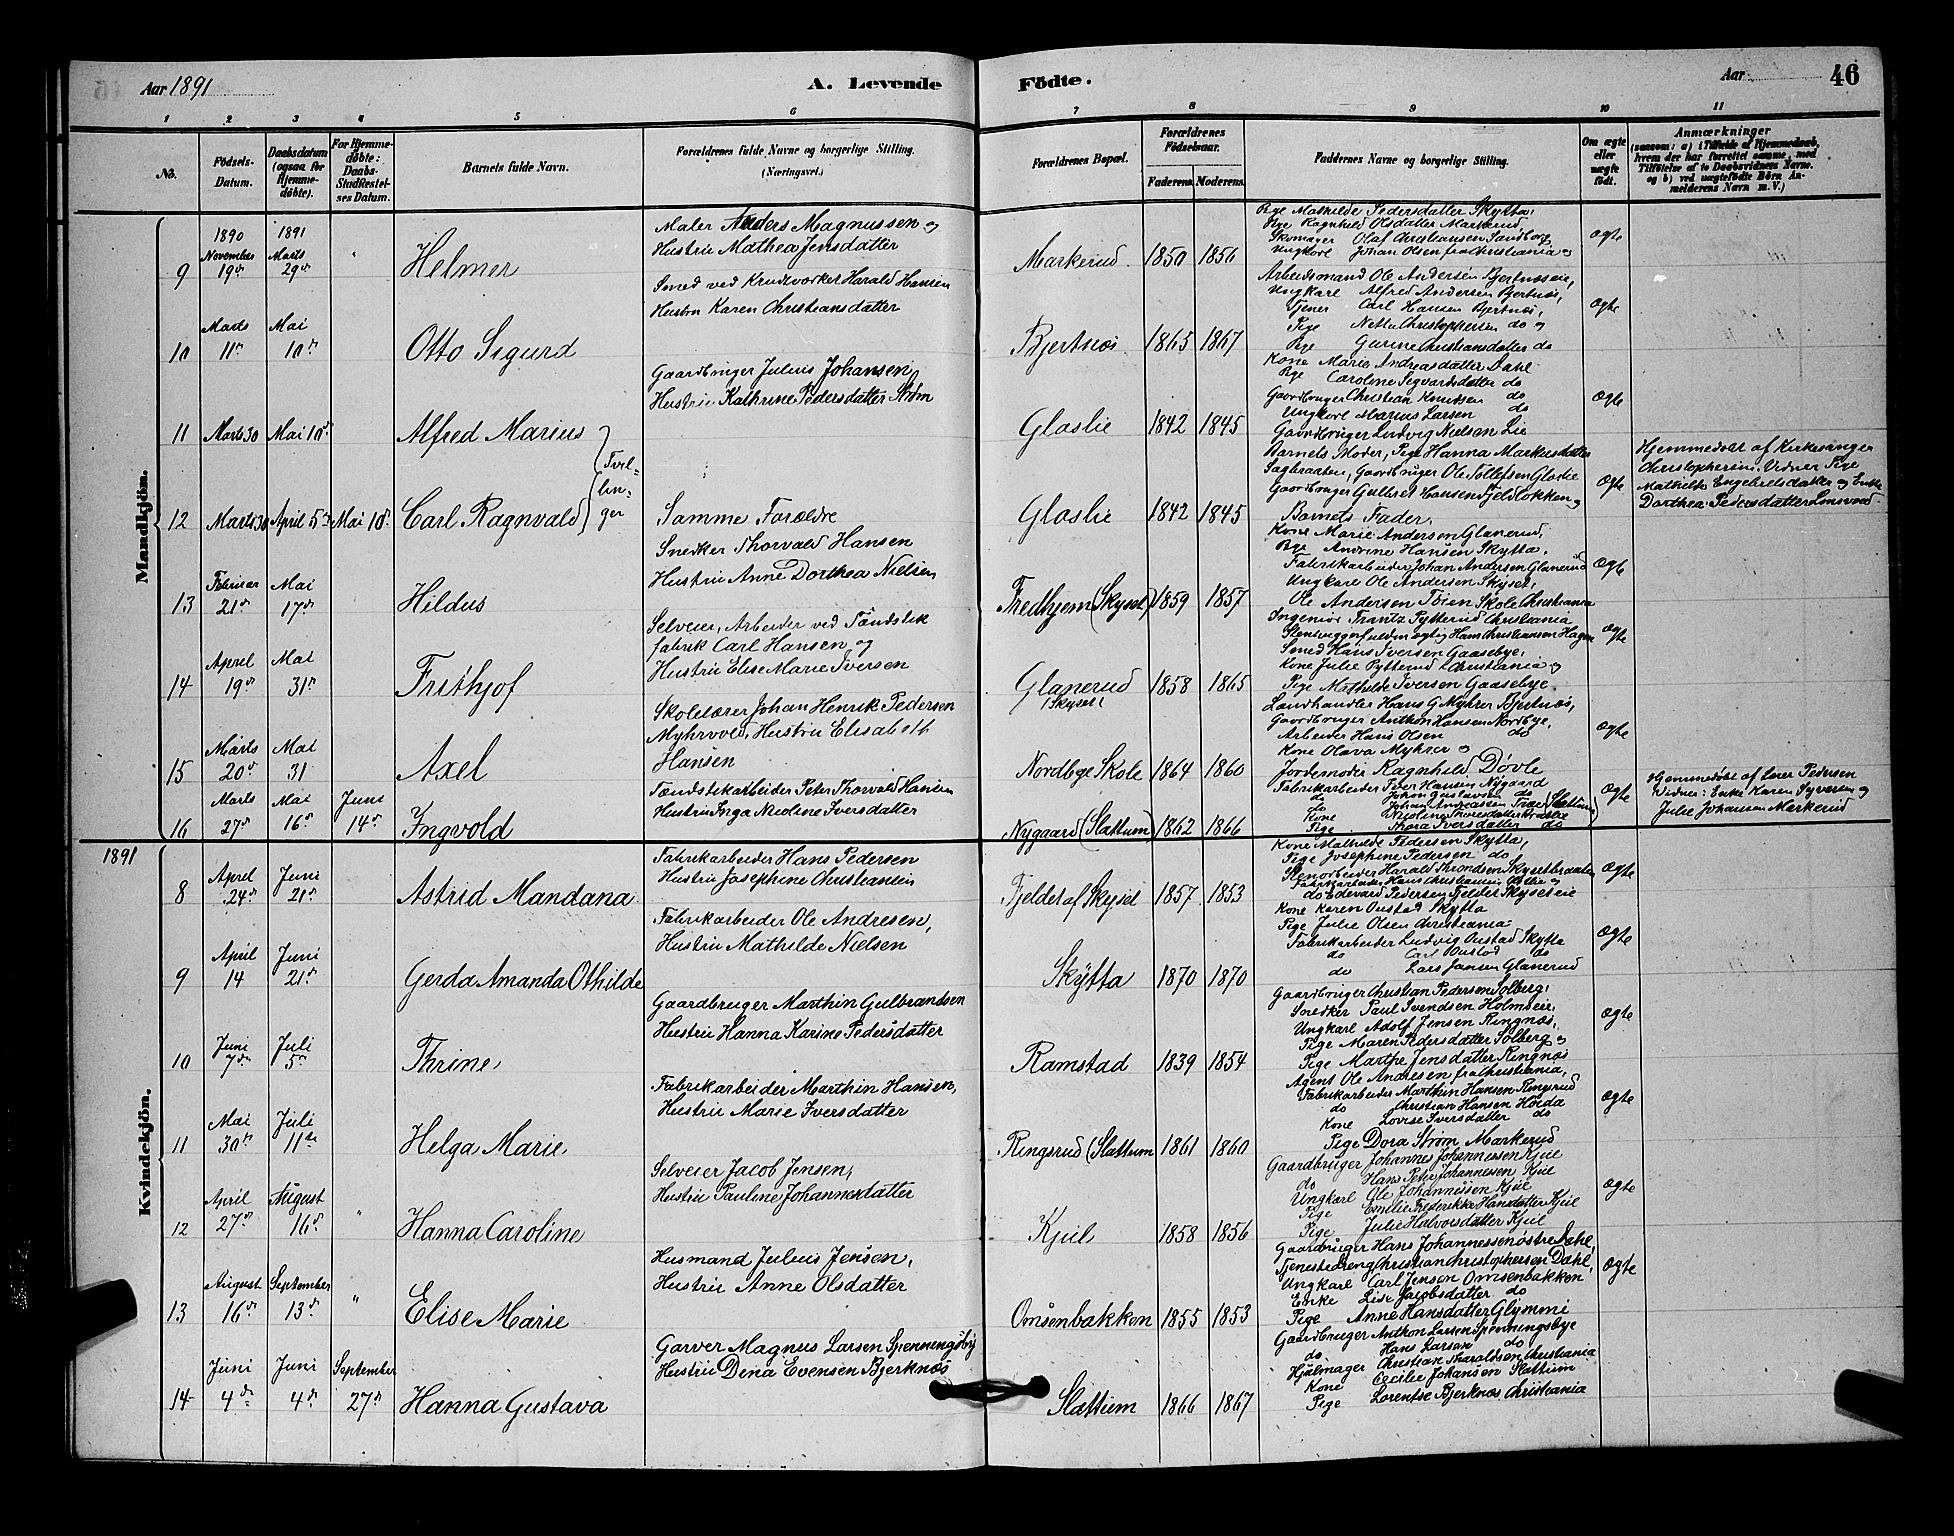 Aar 1891
A. Levende
Födte.
Aar
46
1 2 3 4 5 6 7 8 9 10 11
No.
Födsels-Datum.
Daabsdatum (ogsaa for Hjemmedöbte).
For Hjemmedöbte: Daabs-Stadfæstelses Datum.
Barnets fulde Navn.
Forældrenes fulde Navne og borgerlige Stilling. (Næringsvei.)
Forældrenes Bopæl.
Forældrenes Födselsaar.
Faderens. Moderens.
Faddernes Navne og borgerlige Stilling.
Om ægte eller uægte födt.
Anmærkninger
(saasom: a) i Tilfælde af Hjemmedaab, hvem der har forrettet samme, med Tilföielse af to Daabsvidners Navne, og b) ved uægtefödte Börn Anmelderens Navn m. V.)
Mandkjön.
9
1890 November 19de
1891 Marts 29de
"
Helmer
Maler Anders Magnussen og
Hustru Mathea Jensdatter
Markerud
1850 1856
Pige Mathilde Pedersdatter Skytta,
Pige Ragnhild Olsdatter Markerud,
Skomager Olaf Christiansen Sandborg,
Ungkarl Johan Olsen fra Christiania og
Ægte
10
Marts 11te
Mai 10de
Otto Sigurd
Smed ved Krudtværket Harald Hansen
Hustru Karen Christiansdatter
Bjertnæs
1865 1867
Arbeidsmand Ole Andersen Bjertnæseie,
Ungkarl Alfred Andersen Bjertnæs,
Tjener Carl Hansen Bjertnæs,
Pige Netta Christophersen do og
Pige Gurine Christiansdatter do
Ægte
11
Marts 30
Mai 10de
Alfred Marius
Gaardbruger Julius Johansen
Hustru Kathrine Pedersdatter Strøm
Glaslie
1842 1845
Kone Marie Andreasdatter Dahl
Pige Caroline Segvardsdatter do
Gaardbruger Christian Knutsen do
Ungkarl Marius Larsen do
Gaardbruger Ludvig Nielsen Lie
Ægte
Tvillinger
12
Marts 30
April 5te
Mai 10de
Carl Ragnvald
Samme Forældre
Glaslie
1842 1845
Barnets Moder, Pige Hanna Markusdatter
Sagbraaten, Gaardbruger Ole Tollefsen Glaslie
Gaardbruger Gulbret Hansen Fjeldlokken og
Barnets Fader.
Ægte
Hjemmedøbt af Kirkesanger
Christophersen. Vidner Pige
Mathilde Engebretsdatter og Enke
Dorthea Pedersdatter
13
Februar 21de
Mai 17de
Hildus
Snedker Thorvald Hansen
Hustru Anne Dorthea Nielsen
Fredhjem (Skyset)
1859 1857
Kone Marie Andersen Glanerud,
Pige Andrine Hansen Skytta,
Fabrikarbeider Johan Andersen Glanerud
Ungkarl Ole Andersen Skyset,
Ole Andersen Tøien Skole Christiania
Ægte
14
April 19de
Mai 31te
Frithjof
Selveier, Arbeider ved Tændstik
fabrik Carl Hansen og
Hustru Elise Marie Iversen
Glanerud (Skyset)
1858 1865
Ingeniør Frantz Pytterud Christiania
Hans Christiansen Hagen
Smed Hans Iversen Gaasebye,
Kone Julie Pytterud Christiania og
Pige Mathilde Iversen Gaasebye
Ægte
15
Marts 20de
Mai 31
Axel
Skolelærer Johan Henrik Pedersen
Myhrvold, Hustru Elisabeth
Hansen
Nordbye Skole
1864 1860
Landhandler Hans G Myhrer Bjertnæs,
Gaardbruger Anthon Hansen Nordbye,
Arbeider Hans Olsen do
Kone Olava Myhrer og
Jordemoder Ragnhild Døvle
Ægte
16
Marts 27de
Mai 16de
Juni 14de
Ingvold
Tændstikarbeider Peter Thorvald Hansen
Hustru Inga Nicoline Iversdatter
Nygaard (Slattum)
1862 1866
Fabrikarbeider Iver Hansen Nygaard
do Johan Gustavsen do
do Johan Andreassen (Slattum)
Kone Nicoline
Pige Thora Iversdatter do
Ægte
Hjemmedøbt af Lærer Pedersen
Vidner: Enke Karen Syversen og
Julie Johansen Markerud
1891
Kvindekjön.
8
April 24de
Juni 21de
Astrid Mandana
Fabrikarbeider Hans Pedersen
Hustru Josephine Christiansen
Fjeldet af Skyset
1857 1853
Kone Mathilde Pedersen Skytta,
Pige Josephine Pedersen do
Stenarbeider Harald Throndsen
Fabrikarbeider Hans Christiansen
do Edevard Pedersen Fjeldet Skyseteie
Ægte
9
April 14
Juni 21de
Gerda Amanda Othilde
Fabrikarbeider Ole Andresen,
Hustru Mathilde Nielsen
Skytta
1870 1870
Kone Karen Oustad Skytta
Pige Julie Olsen Christiania
Fabrikarbeider Ludvig Oustad Skytta
do Carl Oustad do
do Lars Jansen Glanerud
Ægte
10
Juni 7de
Juli 5te
Thrine
Gaardbruger Marthin Gulbrandsen
Hustru Hanna Karine Pedersdatter
Ramstad
1839 1854
Gaardbruger Christian Pedersen Solberg,
Snedker Paul Svendsen Holmseie,
Ungkarl Adolf Jensen Ringnæs,
Pige Maren Pedersdatter Solberg og
Pige Marthe Jensdatter Ringnæs
Ægte
11
Mai 30te
Juli 11te
Helga Marie
Fabrikarbeider Marthin Hansen,
Hustru Marie Iversdatter
Ringsrud (Slattum
1861 1860
Agent Ole Andresen fra Christiania,
Fabrikarbeider Marthin Hansen Ringsrud
do Christian Hansen Holda
Kone Lovise Iversdatter do
Pige Dora Strøm Markerud
Ægte
12
April 27de
August 16de
"
Hanna Caroline
Selveier Jacob Jensen,
Hustru Pauline Johannesdatter
Kjul
1858 1856
Gaardbruger Johannes Johannessen Kjul
do Hans Peter Johannessen Kjul
Ungkarl Ole Johannessen Kjul
Pige Emilie Frederikke Hansdatter Kjul
Pige Julie Halvorsdatter Kjul
Ægte
13
August 16de
September 13de
"
Elise Marie
Husmand Julius Jensen,
Hustru Anne Olsdatter
Omsenbakken
1855 1853
Gaardbruger Hans Johannessen østre Dahl,
Tjenestedreng Christian Christophersen Dahl,
Ungkarl Carl Jensen Omsenbakken
Enke Lise Jacobsdatter do
Pige Anne Hansdatter Glymmi
Ægte
14
Juni 4de
Juni 4de
September 27de
Hanna Gustava
Garver Magnus Larsen Spenningsby
Hustru Dina Evensen Bjerknæs
Slattum
1866 1867
Gaardbruger Anthon Larsen Spenningsbye
do Hans Larsen do
Hjulmager Christian Tharaldsen Christiania
Kone Cecilie Johansen Slattum
Pige Lorentse Bjerknæs Christiania